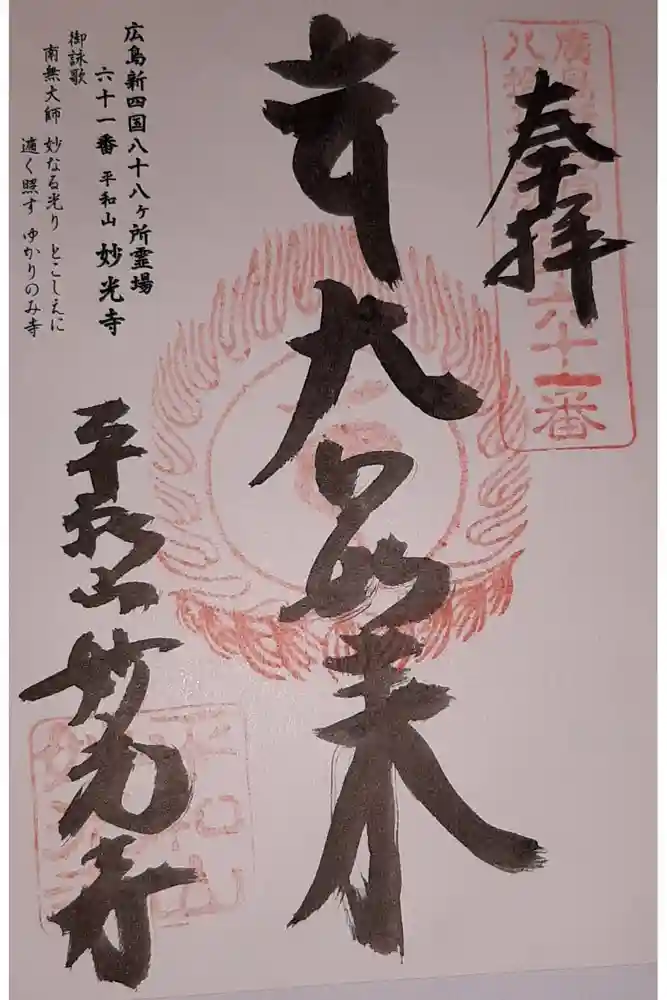 奉拝
六十一番
大日如来
広島新四国八十八ヶ所霊場
六十一番 平和山 妙光寺
御詠歌
南無大師 妙なる光り とこしえに
遍く照す ゆかりのみ寺
平和山 妙光寺
平和山